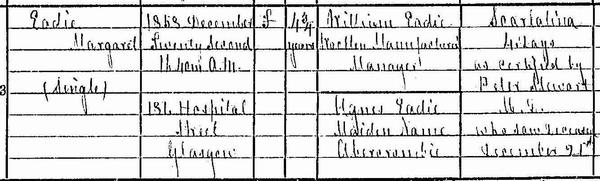 Eadie
Margaret
(Single)
3
1868 December
Twenty Second
1h 40m A.M.
181 Hospital
Street
Glasgow
F
4 3/4
years
William Eadie
Woollen Manufacturer
Manager
Agnes Eadie
Maiden Name
Abercrombie
Scarlatina
4 days
as certified by
Peter Stewart
who saw deceased
December 21st